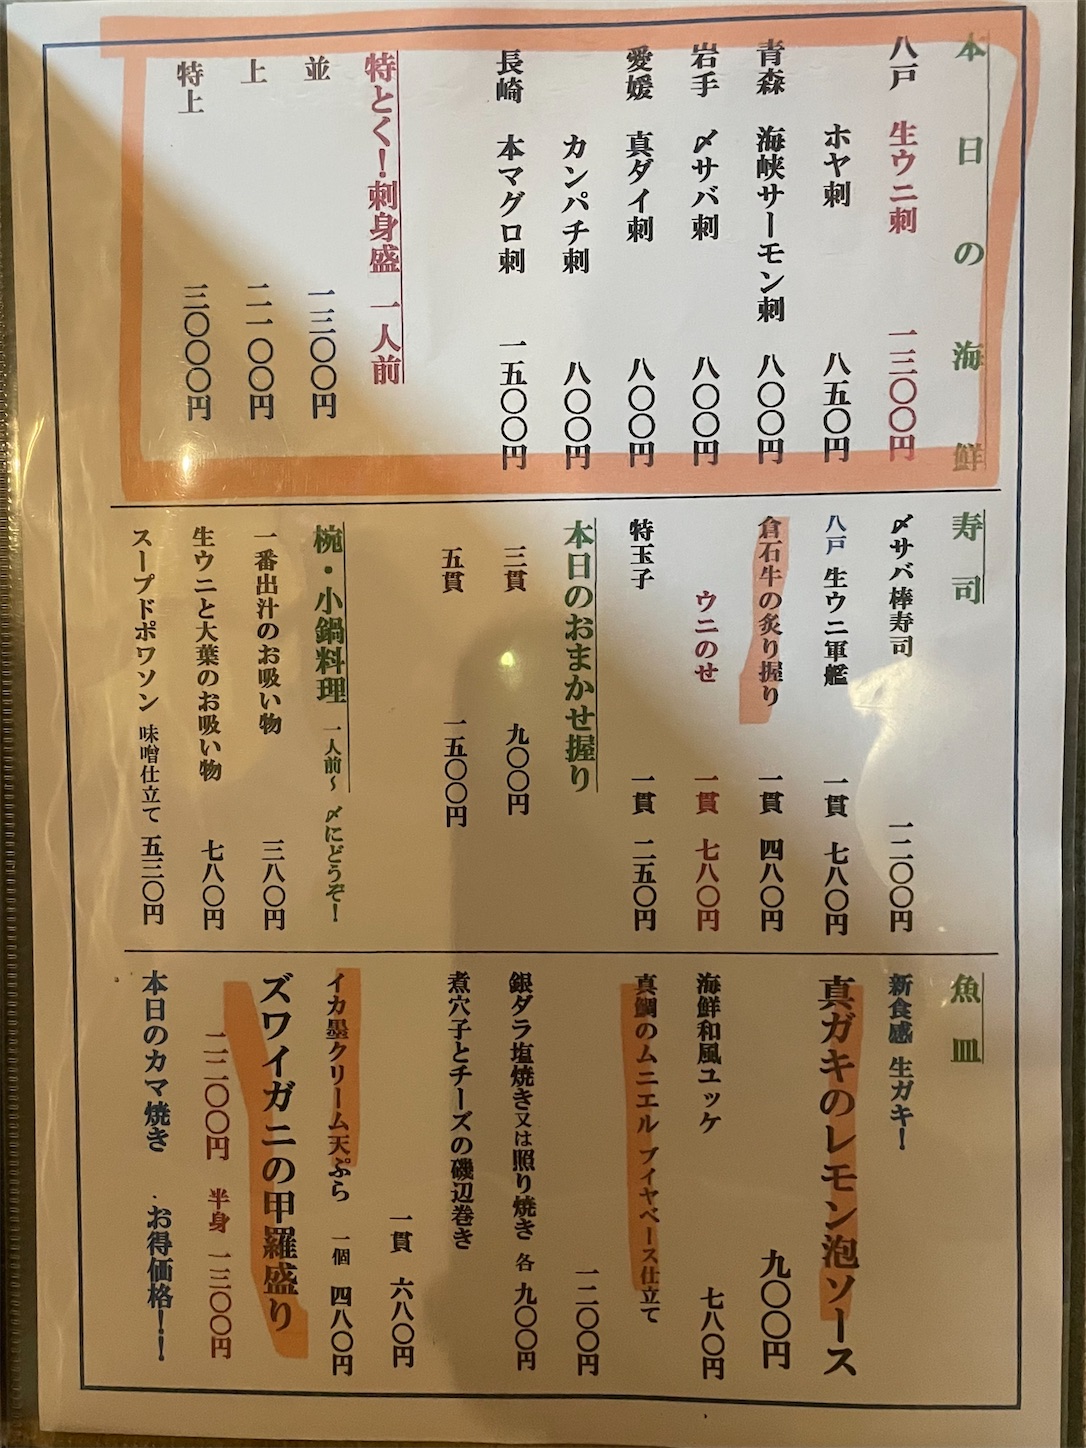 本日の海鮮
八戸 生ウニ刺 一三〇〇円
ホヤ刺 八五〇円
青森 海峡サーモン刺 八〇〇円
岩手 〆サバ刺 八〇〇円
愛媛 真ダイ刺 八〇〇円
カンパチ刺 八〇〇円
長崎 本マグロ刺 一五〇〇円
特とく！刺身盛 一人前
並 一三〇〇円
上 二一〇〇円
特上 三〇〇〇円
寿司
〆サバ棒寿司 一二〇〇円
八戸 生ウニ軍艦 一貫 七八〇円
倉石牛の炙り握り 一貫 四八〇円
ウニのせ 一貫 七八〇円
特玉子 一貫 二五〇円
本日のおまかせ握り
三貫 九〇〇円
五貫 一五〇〇円
椀・小鍋料理 一人前～ 〆にどうぞ！
一番出汁のお吸い物 三八〇円
生ウニと大葉のお吸い物 七八〇円
スープドポワソン 味噌仕立て 五三〇円
魚皿
新食感 生ガキ！
真ガキのレモン泡ソース
九〇〇円
海鮮和風ユッケ 七八〇円
真鯛のムニエル ブイヤベース仕立て
一二〇〇円
銀ダラ塩焼き又は照り焼き 各 九〇〇円
煮穴子とチーズの磯辺巻き
一貫 六八〇円
イカ墨クリーム天ぷら 一個 四八〇円
ズワイガニの甲羅盛り
二二〇〇円 半身 一三〇〇円
本日のカマ焼き お得価格！！